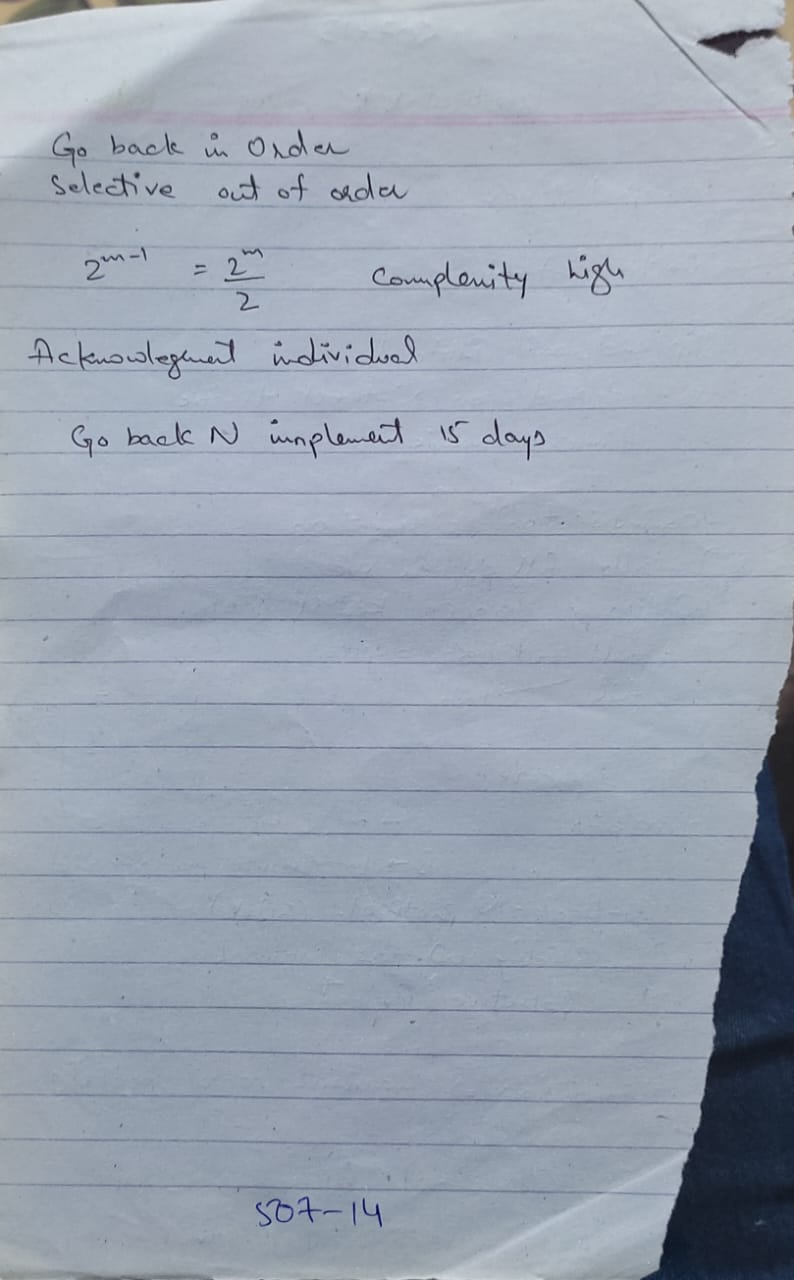 Go back in Order
Selective out of order
2^m-1 = 2^m/2 Complenity high
Acknowlegment individual
Go back N implement 15 days
507-14